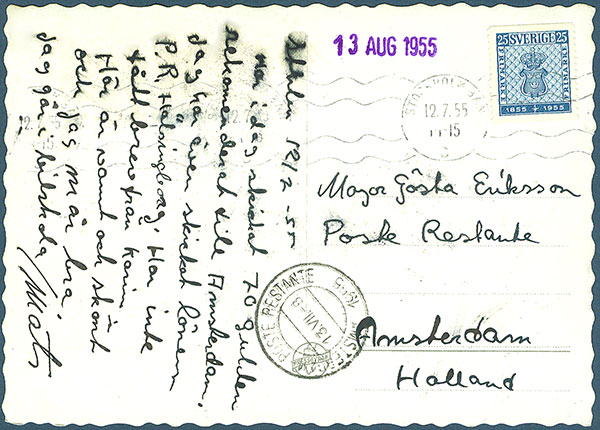 Sthlm 12/7 -55
Har i dag skickat 70 gulden
rekomenderat till Amsterdam.
Jag har även skickat lönen
P.R. Hälsingborg. Har inte
fått brev från Karin,
Här är varmt och skönt
och jag mår bra
Jag går i bilskola
/Mats
13 AUG 1955
25 SVERIGE 25
FRIMÄRKE
FRIMÄRKE
1855 1955
STOCKHOLM
12.7.55
12.7.55
Major Gösta Eriksson
Poste Restante
Amsterdam
Holland
POSTE RESTANTE
13.VII.-8
1955